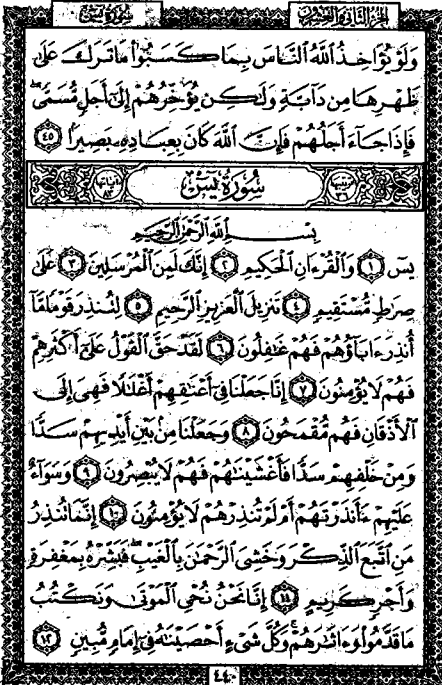 سورة يس
الجزء الثاني والعشرون
وَلَوْ يُؤَاخِذُ ٱللَّهُ ٱلنَّاسَ بِمَا كَسَبُوا۟ مَا تَرَكَ عَلَىٰ
ظَهْرِهَا مِن دَآبَّةٍ وَلَٰكِن يُؤَخِّرُهُمْ إِلَىٰٓ أَجَلٍ مُّسَمًّى ۖ
فَإِذَا جَآءَ أَجَلُهُمْ فَإِنَّ ٱللَّهَ كَانَ بِعِبَادِهِۦ بَصِيرًۢا ٤٥
سُورَةُ يسٓ
بِسْمِ ٱللَّهِ ٱلرَّحْمَٰنِ ٱلرَّحِيمِ
يسٓ ١ وَٱلْقُرْءَانِ ٱلْحَكِيمِ ٢ إِنَّكَ لَمِنَ ٱلْمُرْسَلِينَ ٣ عَلَىٰ
صِرَٰطٍ مُّسْتَقِيمٍ ٤ تَنزِيلَ ٱلْعَزِيزِ ٱلرَّحِيمِ ٥ لِتُنذِرَ قَوْمًا مَّآ
أُنذِرَ ءَابَآؤُهُمْ فَهُمْ غَٰفِلُونَ ٦ لَقَدْ حَقَّ ٱلْقَوْلُ عَلَىٰٓ أَكْثَرِهِمْ
فَهُمْ لَا يُؤْمِنُونَ ٧ إِنَّا جَعَلْنَا فِىٓ أَعْنَٰقِهِمْ أَغْلَٰلًا فَهِىَ إِلَى
ٱلْأَذْقَانِ فَهُم مُّقْمَحُونَ ٨ وَجَعَلْنَا مِنۢ بَيْنِ أَيْدِيهِمْ سَدًّا
وَمِنْ خَلْفِهِمْ سَدًّا فَأَغْشَيْنَٰهُمْ فَهُمْ لَا يُبْصِرُونَ ٩ وَسَوَآءٌ
عَلَيْهِمْ ءَأَنذَرْتَهُمْ أَمْ لَمْ تُنذِرْهُمْ لَا يُؤْمِنُونَ ١٠ إِنَّمَا تُنذِرُ
مَنِ ٱتَّبَعَ ٱلذِّكْرَ وَخَشِىَ ٱلرَّحْمَٰنَ بِٱلْغَيْبِ ۖ فَبَشِّرْهُ بِمَغْفِرَةٍ
وَأَجْرٍ كَرِيمٍ ١١ إِنَّا نَحْنُ نُحْىِ ٱلْمَوْتَىٰ وَنَكْتُبُ
مَا قَدَّمُوا۟ وَءَاثَٰرَهُمْ ۚ وَكُلَّ شَىْءٍ أَحْصَيْنَٰهُ فِىٓ إِمَامٍ مُّبِينٍ ١٢
٤٤٠